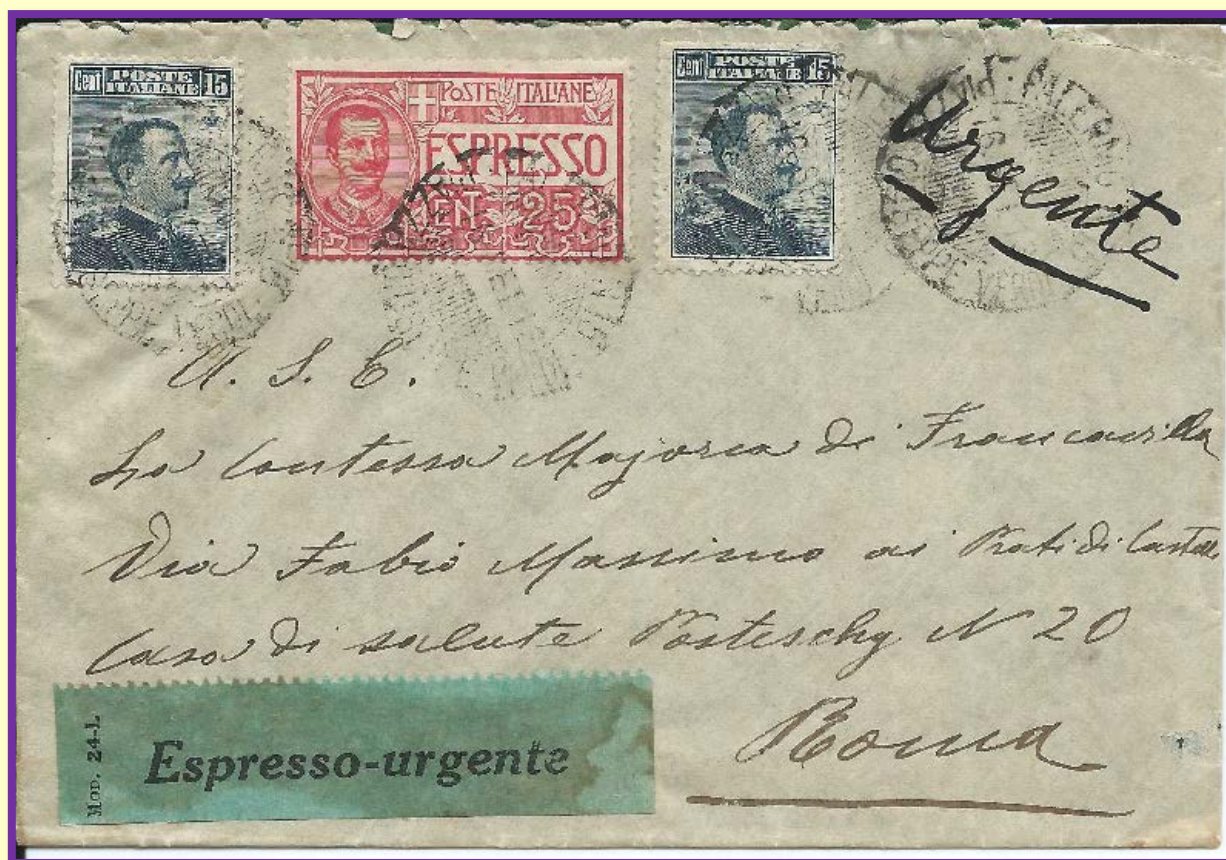 Cent POSTE ITALIANE 15
POSTE ITALIANE
ESPRESSO
CENT. 25
Cent POSTE ITALIANE 15
Urgente
PALERMO
A. S. E.
La Contessa Majorca di Francavilla
Via Fabio Massimo ai Prati di Castello
Casa di salute N 20
Roma
MOD. 24-L
Espresso-urgente